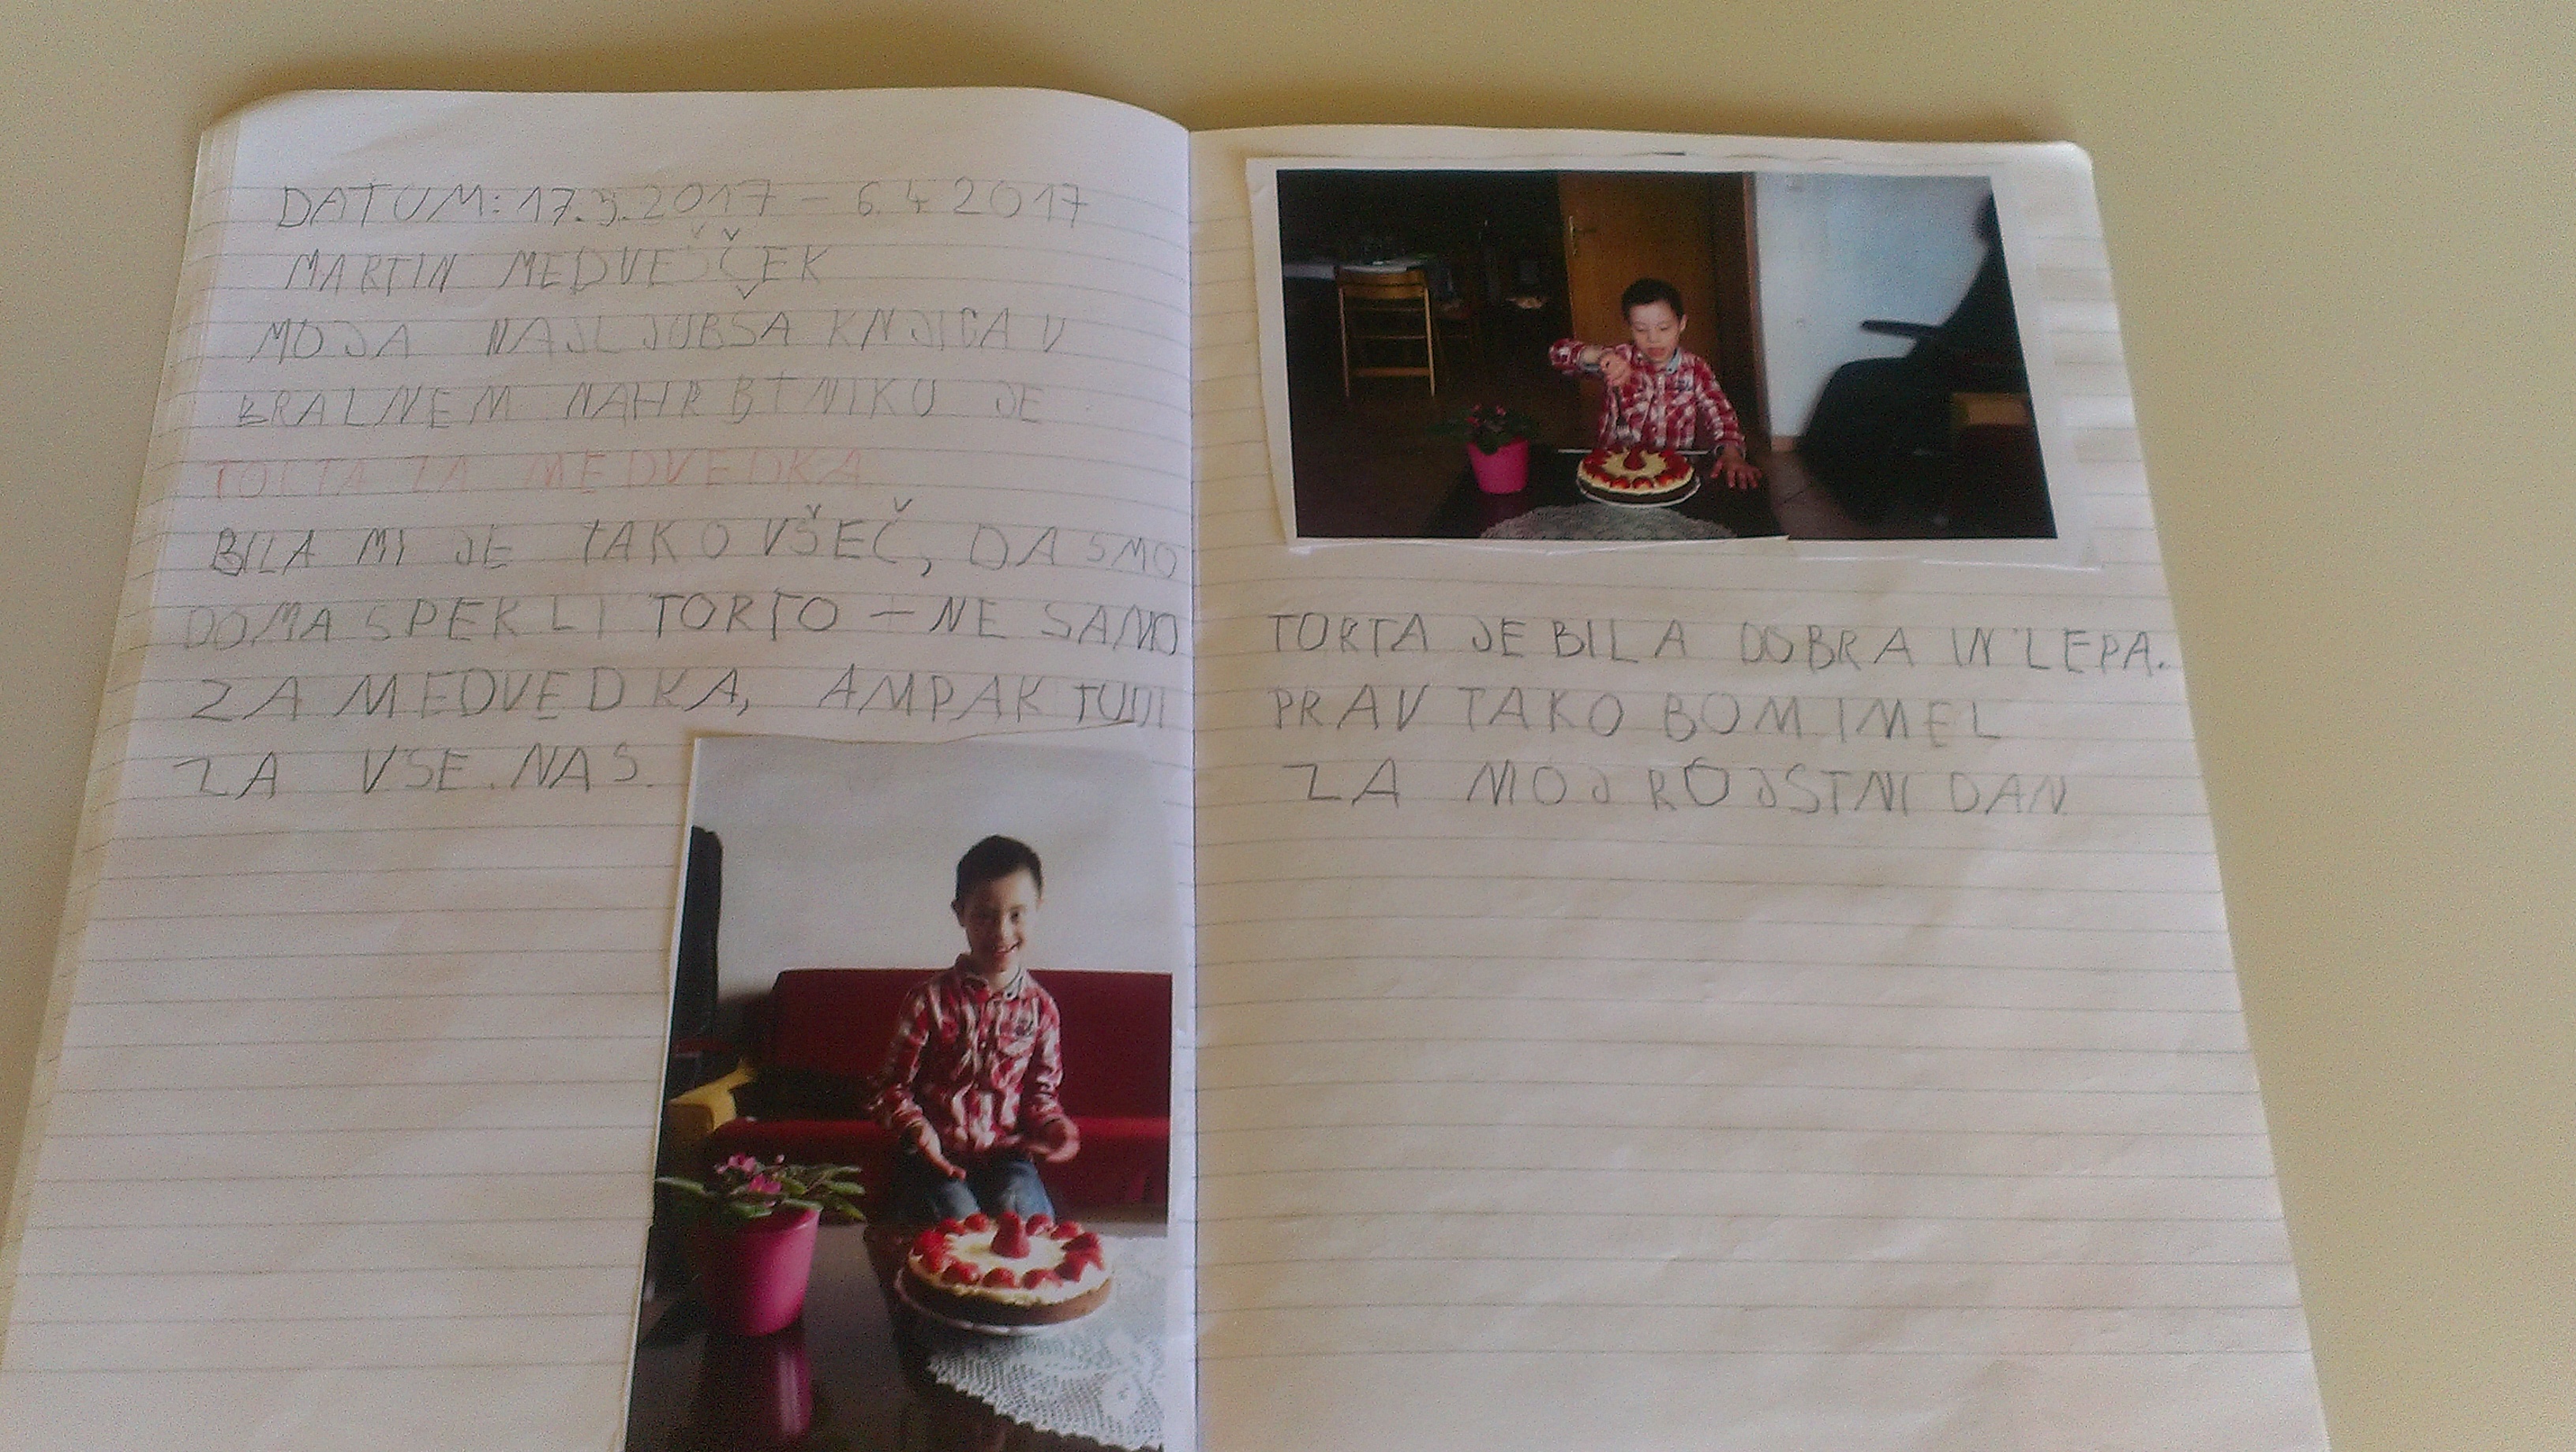 DATUM: 17.3.2017 – 6.4.2017
MARTIN MEDVEŠČEK
MOJA NAJLJUBŠA KNJIGA V
BRALNEM NAHRBTNIKU JE
TORTA ZA MEDVEDKA.
BILA MI JE TAKO VŠEČ, DA SMO
DOMA SPEKLI TORTO – NE SAMO
ZA MEDVEDKA, AMPAK TUDI
ZA VSE NAS.
TORTA JE BILA DOBRA IN LEPA.
PRAV TAKO BOM IMEL
ZA MOJ ROJSTNI DAN